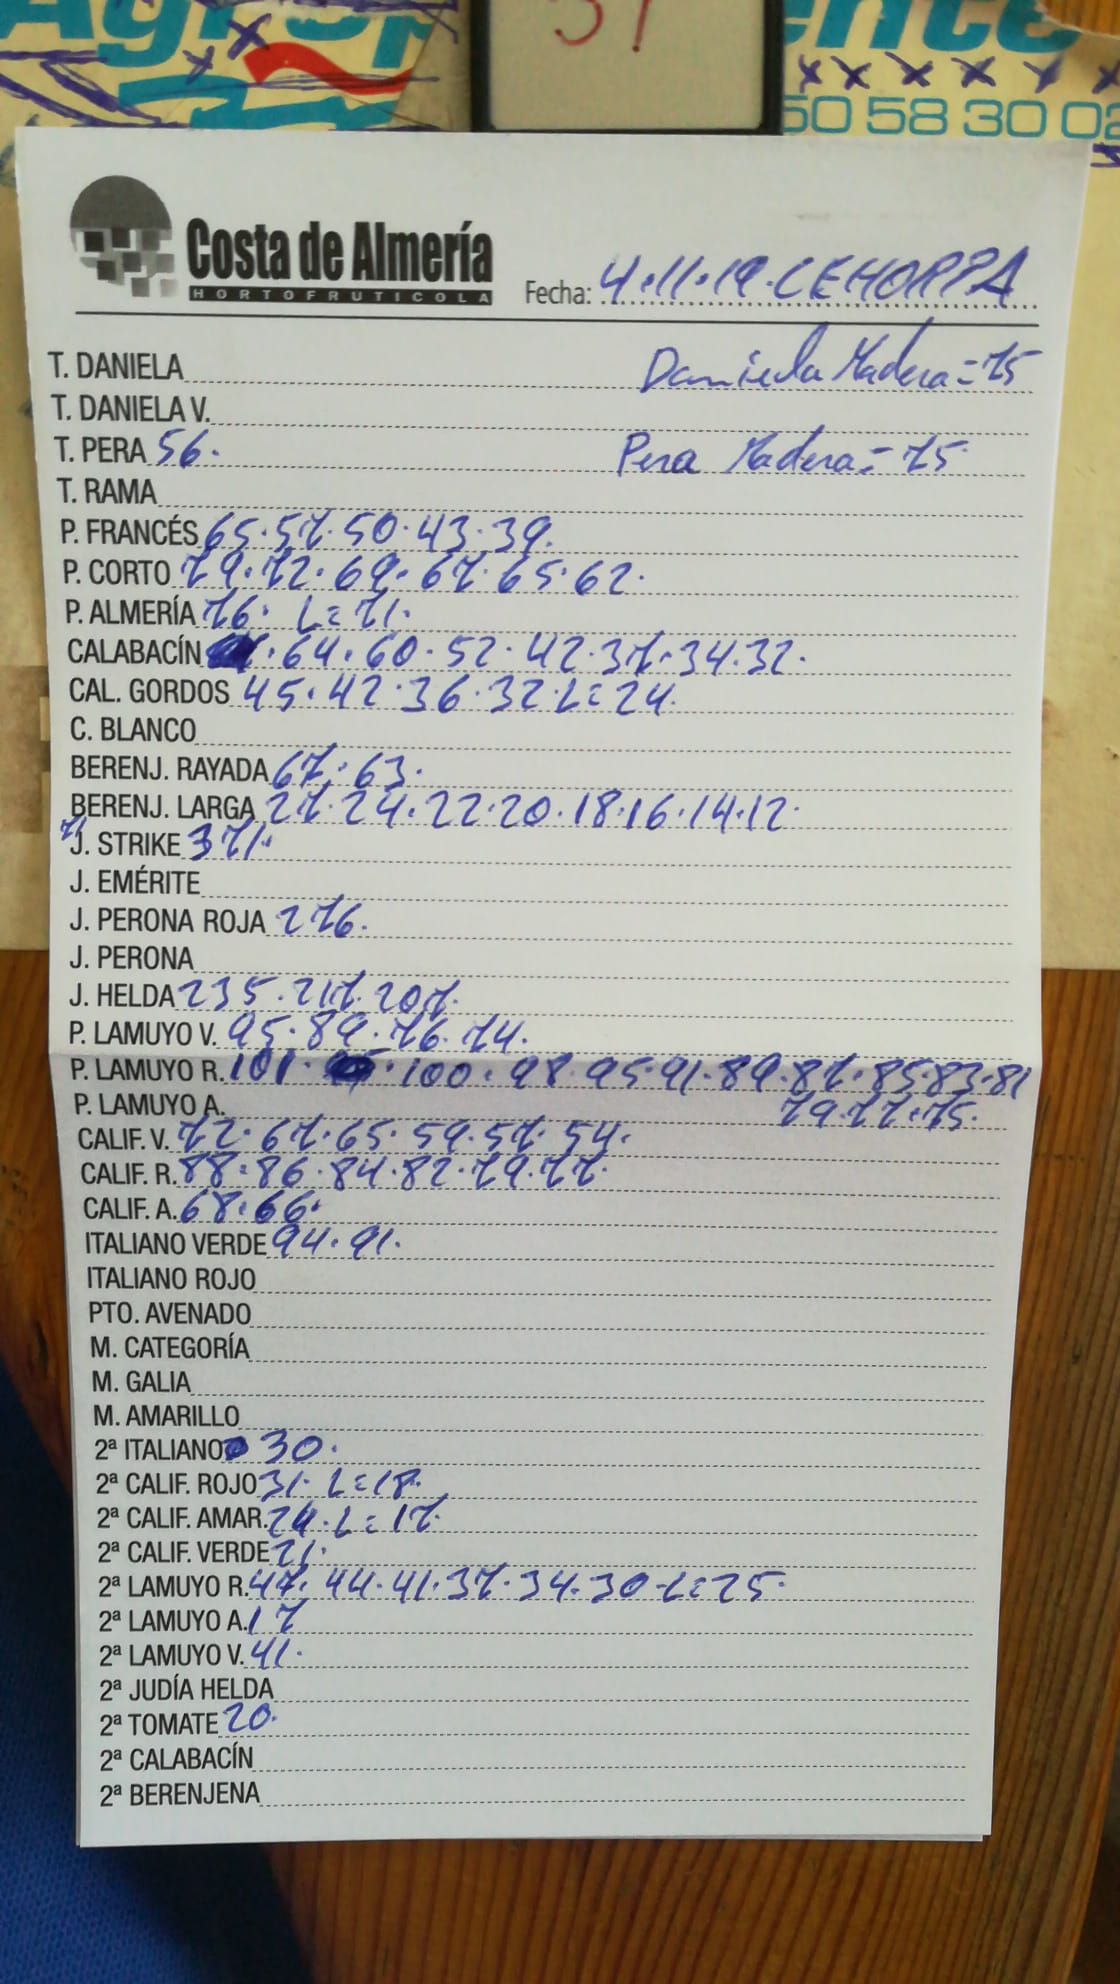 50 58 30 02
Costa de Almería
HORTOFRUTICOLA
Fecha: 4.11.19. CEHORPA
T. DANIELA Daniela Madera = 75
T. DANIELA V.
T. PERA 56. Pera Madera = 75
T. RAMA
P. FRANCÉS 65.57.50.43.39.
P. CORTO 79.72.69.67.65.62.
P. ALMERÍA 76. L=71.
CALABACÍN .64.60.52.42.37.34.32.
CAL. GORDOS 45.42.36.32 L=24.
C. BLANCO
BERENJ. RAYADA 67.63.
BERENJ. LARGA 27.24.22.20.18.16.14.12.
J. STRIKE 371.
J. EMÉRITE
J. PERONA ROJA 276.
J. PERONA
J. HELDA 235.217.207.
P. LAMUYO V. 95.89.76.74.
P. LAMUYO R. 101. .100.98.95.91.89.87.85.83.81
P. LAMUYO A. 79.77.75.
CALIF. V. 72.67.65.59.57.54.
CALIF. R. 88.86.84.82.79.77.
CALIF. A. 68.66.
ITALIANO VERDE 94.91.
ITALIANO ROJO
PTO. AVENADO
M. CATEGORÍA
M. GALIA
M. AMARILLO
2ª ITALIANO 30.
2ª CALIF. ROJO 31. L=18.
2ª CALIF. AMAR. 24. L=17.
2ª CALIF. VERDE 21.
2ª LAMUYO R. 47.44.41.37.34.30 L=25.
2ª LAMUYO A. 17
2ª LAMUYO V. 41.
2ª JUDÍA HELDA
2ª TOMATE 20.
2ª CALABACÍN
2ª BERENJENA